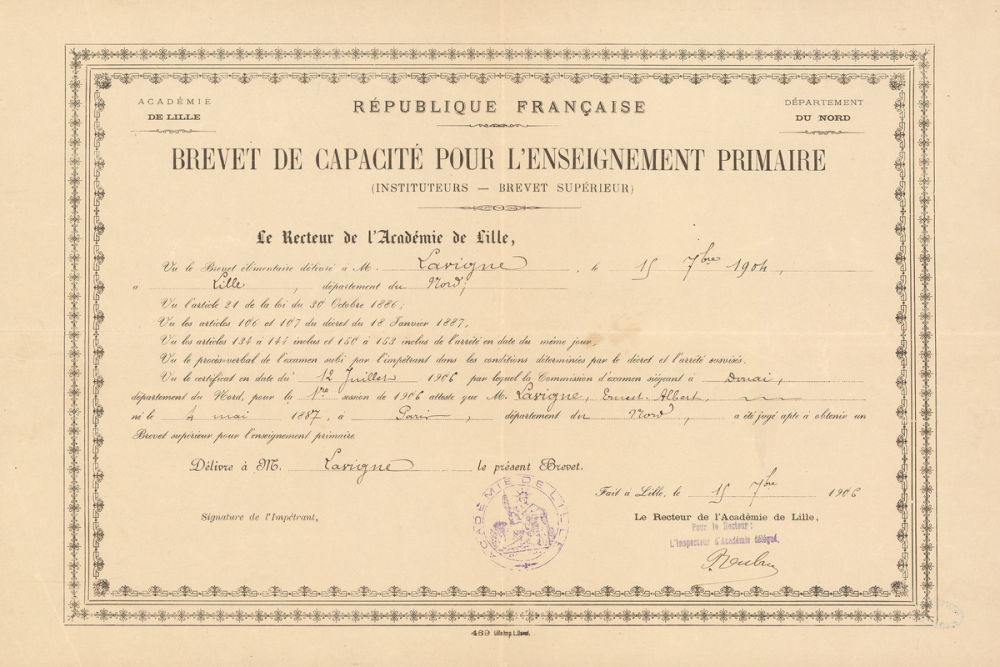 ACADÉMIE
DE LILLE
RÉPUBLIQUE FRANÇAISE
DÉPARTEMENT
DU NORD
BREVET DE CAPACITÉ POUR L'ENSEIGNEMENT PRIMAIRE
(INSTITUTEURS — BREVET SUPÉRIEUR)
Le Recteur de l'Académie de Lille,
Vu le Brevet élémentaire délivré à M. Lavigne, le 15 7bre 1904,
à Lille, département du Nord;
Vu l'article 21 de la loi du 30 Octobre 1886,
Vu les articles 106 et 107 du décret du 18 Janvier 1887,
Vu les articles 134 à 144 inclus et 150 à 153 inclus de l'arrêté en date du même jour,
Vu le procès-verbal de l'examen subi par l'impétrant dans les conditions déterminées par le décret et l'arrêté susvisés,
Vu le certificat en date du 12 Juillet 1906 par lequel la Commission d'examen siégeant à Douai,
département du Nord, pour la 1re session de 1906 atteste que M. Lavigne, Ernest Albert,
né le 4 mai 1887, à Paris, département du Nord, a été jugé apte à obtenir un
Brevet supérieur pour l'enseignement primaire
Délivre à M. Lavigne le présent Brevet.
Fait à Lille, le 15 7bre 1906
Signature de l'Impétrant,
ACADÉMIE DE LILLE
Le Recteur de l'Académie de Lille,
Pour le Recteur :
L'Inspecteur d'Académie délégué,
469 Lille Imp. L. Danel.